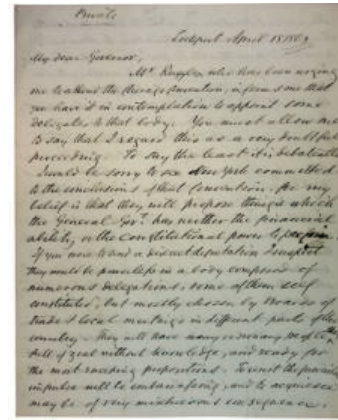 Private
Lockport April 18 1863
My dear Governor,
Mr. Ruggles who has been urging
me to attend the Chicago Convention, informs me that
you have it in contemplation to appoint some
delegates to that body. You must allow me
to say that I regard this as a very doubtful
proceeding. To say the least it is debateable
I would be sorry to see New York committed
to the conclusions of that Convention. For my
belief is that they will propose things which
the General Govt. has neither the financial
ability, or the Constitutional power to perform.
If you now to send a direct deputation I suspect
they would be powerless in a body composed of
numerous delegations, some of them self
constituted, but mostly chosen by Boards of
trade & local meetings in different parts of the
country. They will have many visionary people there
full of zeal without knowledge, and ready for
the most sweeping propositions. To resist the prevailing
impulse will be embarrassing, and to acquiesce
may be of very mischievous consequence.